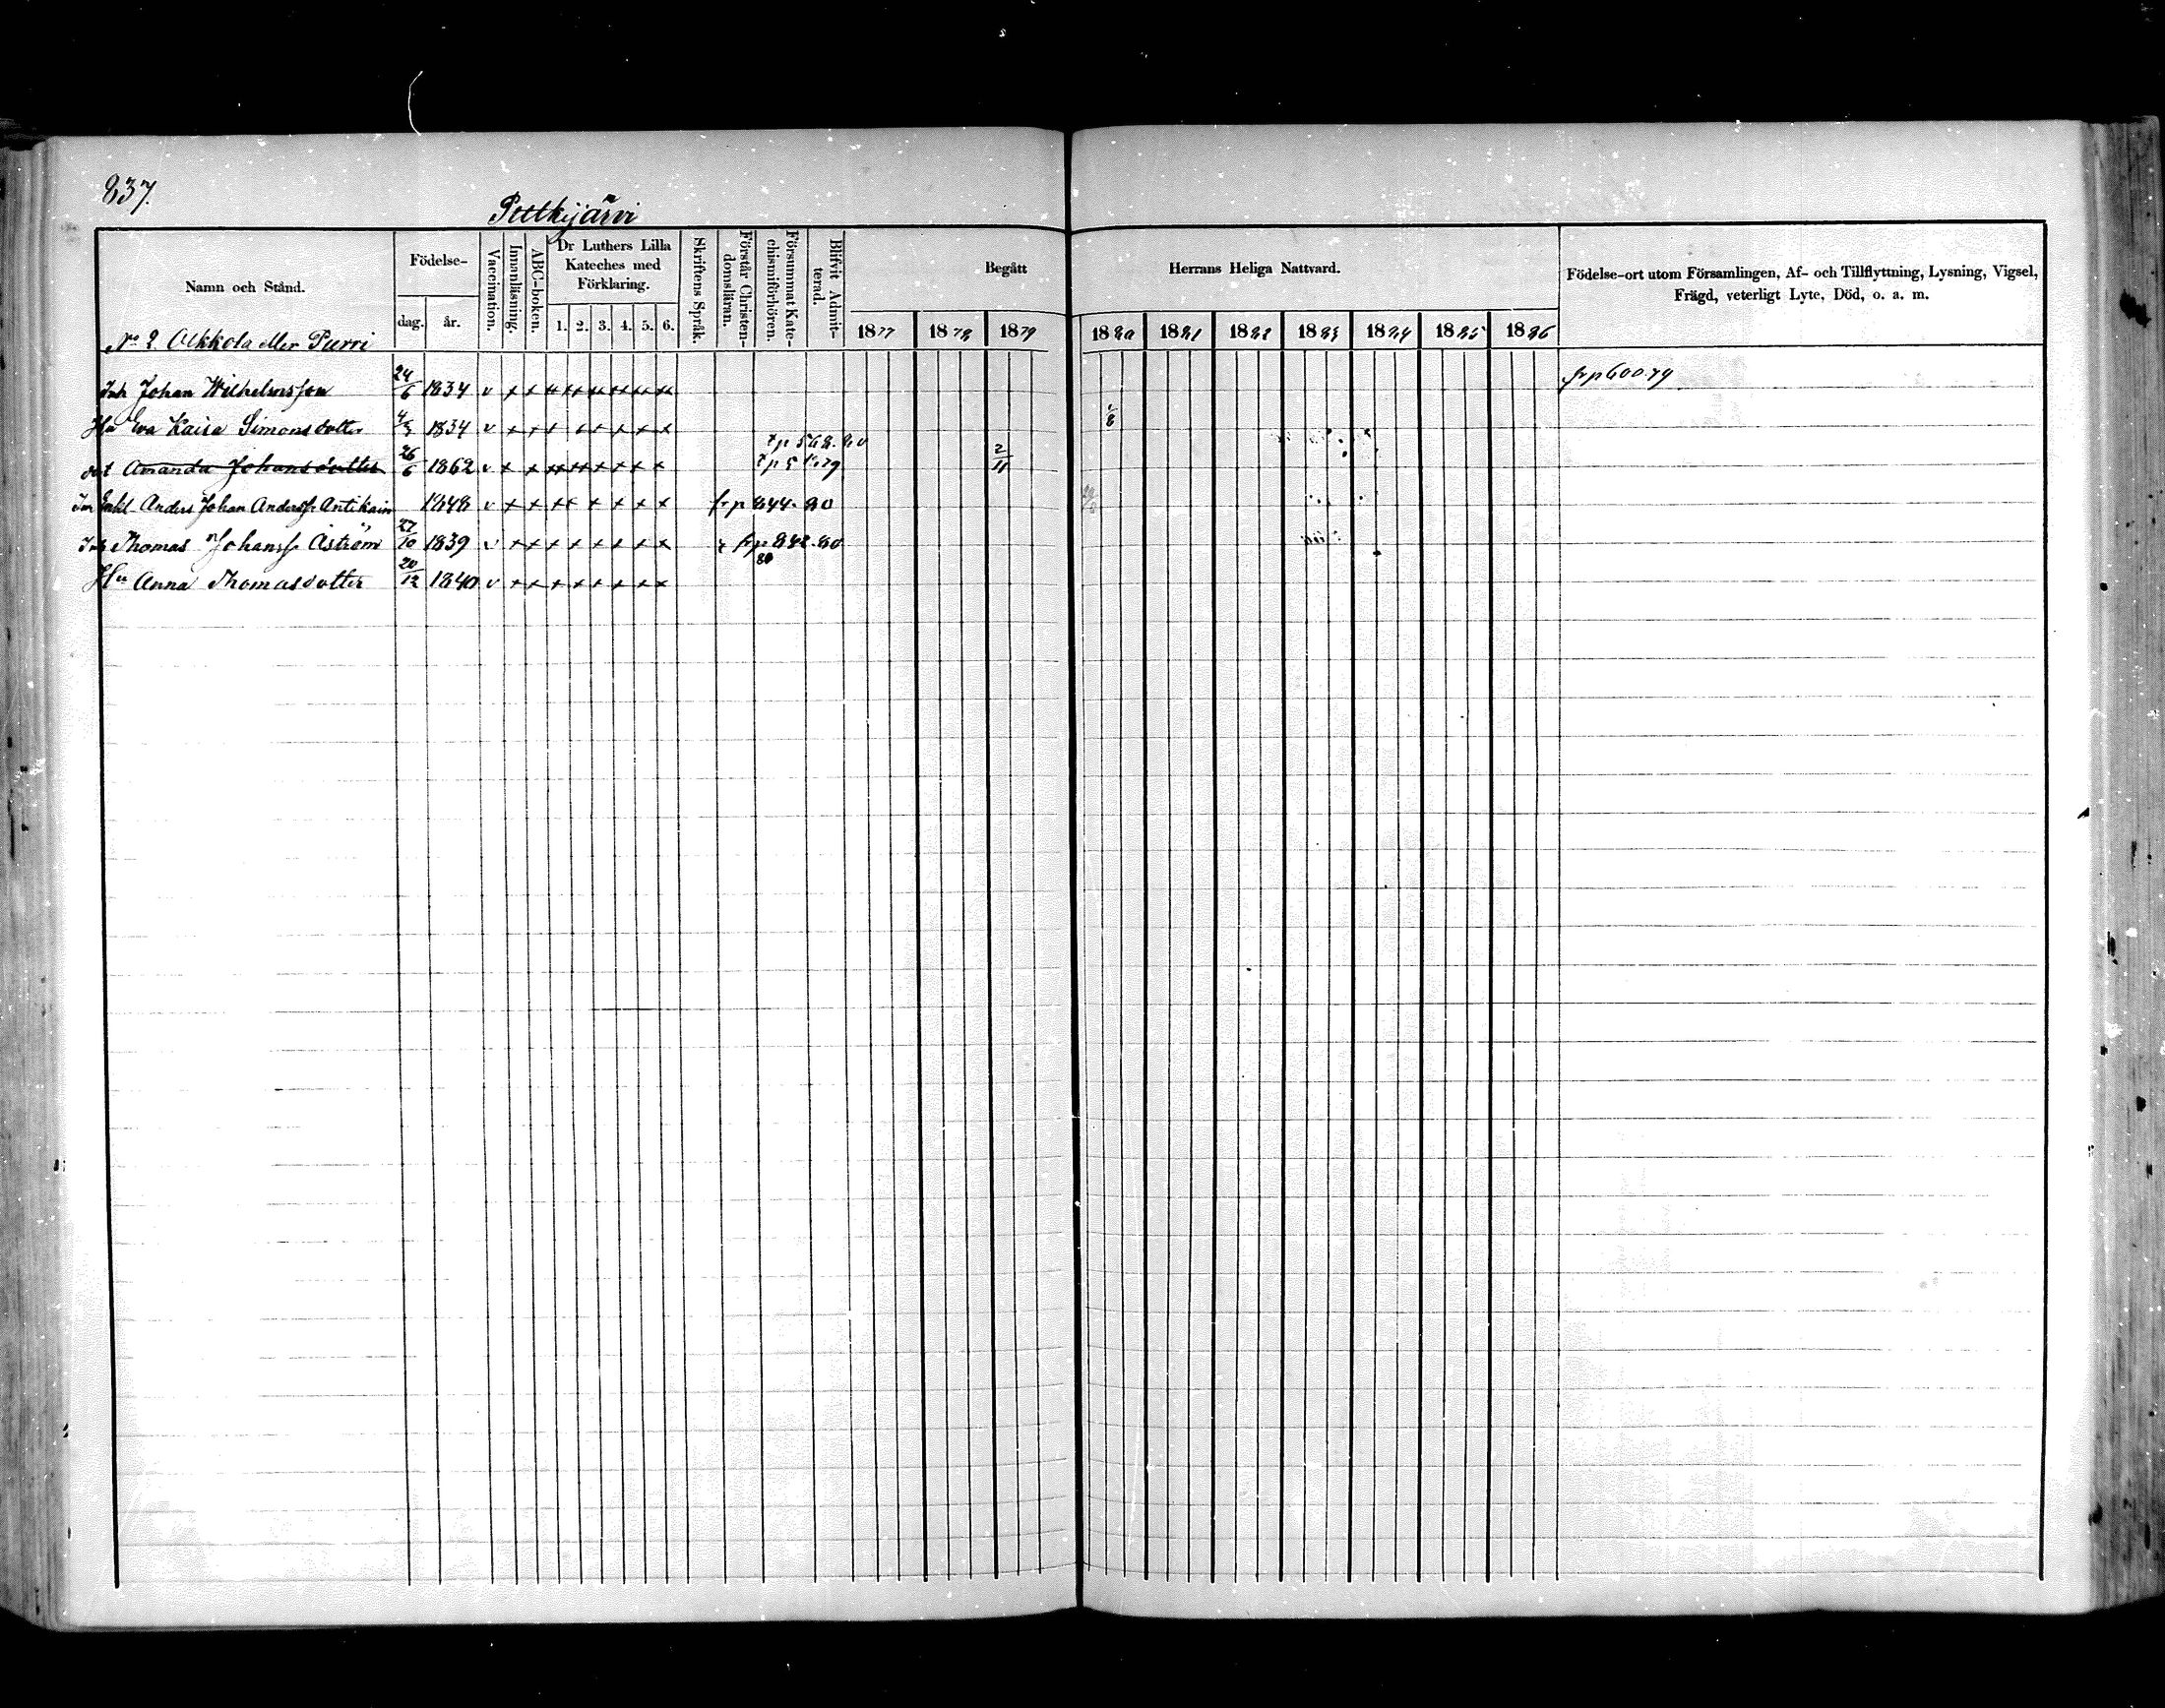 837.
Putkijärvi
Namn och Stånd.
Födelse-
dag. år.
Vaccination.
Innanläsning.
ABC-boken.
Dr Luthers Lilla
Kateches med
Förklaring.
1. 2. 3. 4. 5. 6.
Skriftens Språk.
Förstår Christen-
domsläran.
Försummat Kate-
chismiförhören.
Blifvit Admit-
terad.
Begått Herrans Heliga Nattvard.
1877 1878 1879 1880 1881 1882 1883 1884 1885 1886
Födelse-ort utom Församlingen, Af- och Tillflyttning, Lysning, Vigsel,
Frägd, veterligt Lyte, Död, o. a. m.
No 2. Olkkola eller Purri
Inh Johan Wilhelmsson 24/6 1834 v x x x x x x x x fr p 600.79
Hu Eva Kaisa Simonsdotter 1834 v x x x x x x x x
tp 568.80
dot Amanda Johansdotter 26/6 1862 v x x x x x x x x 2/11
Anders Johan Anderss. Antikain 1848 v x x x x x x x fr p 844. 80
Inh Thomas Johanss. Åström 27/10 1839 v x x x x x x x x fr p 842.80
Hu Anna Thomasdotter 20/12 1840 v x x x x x x x x